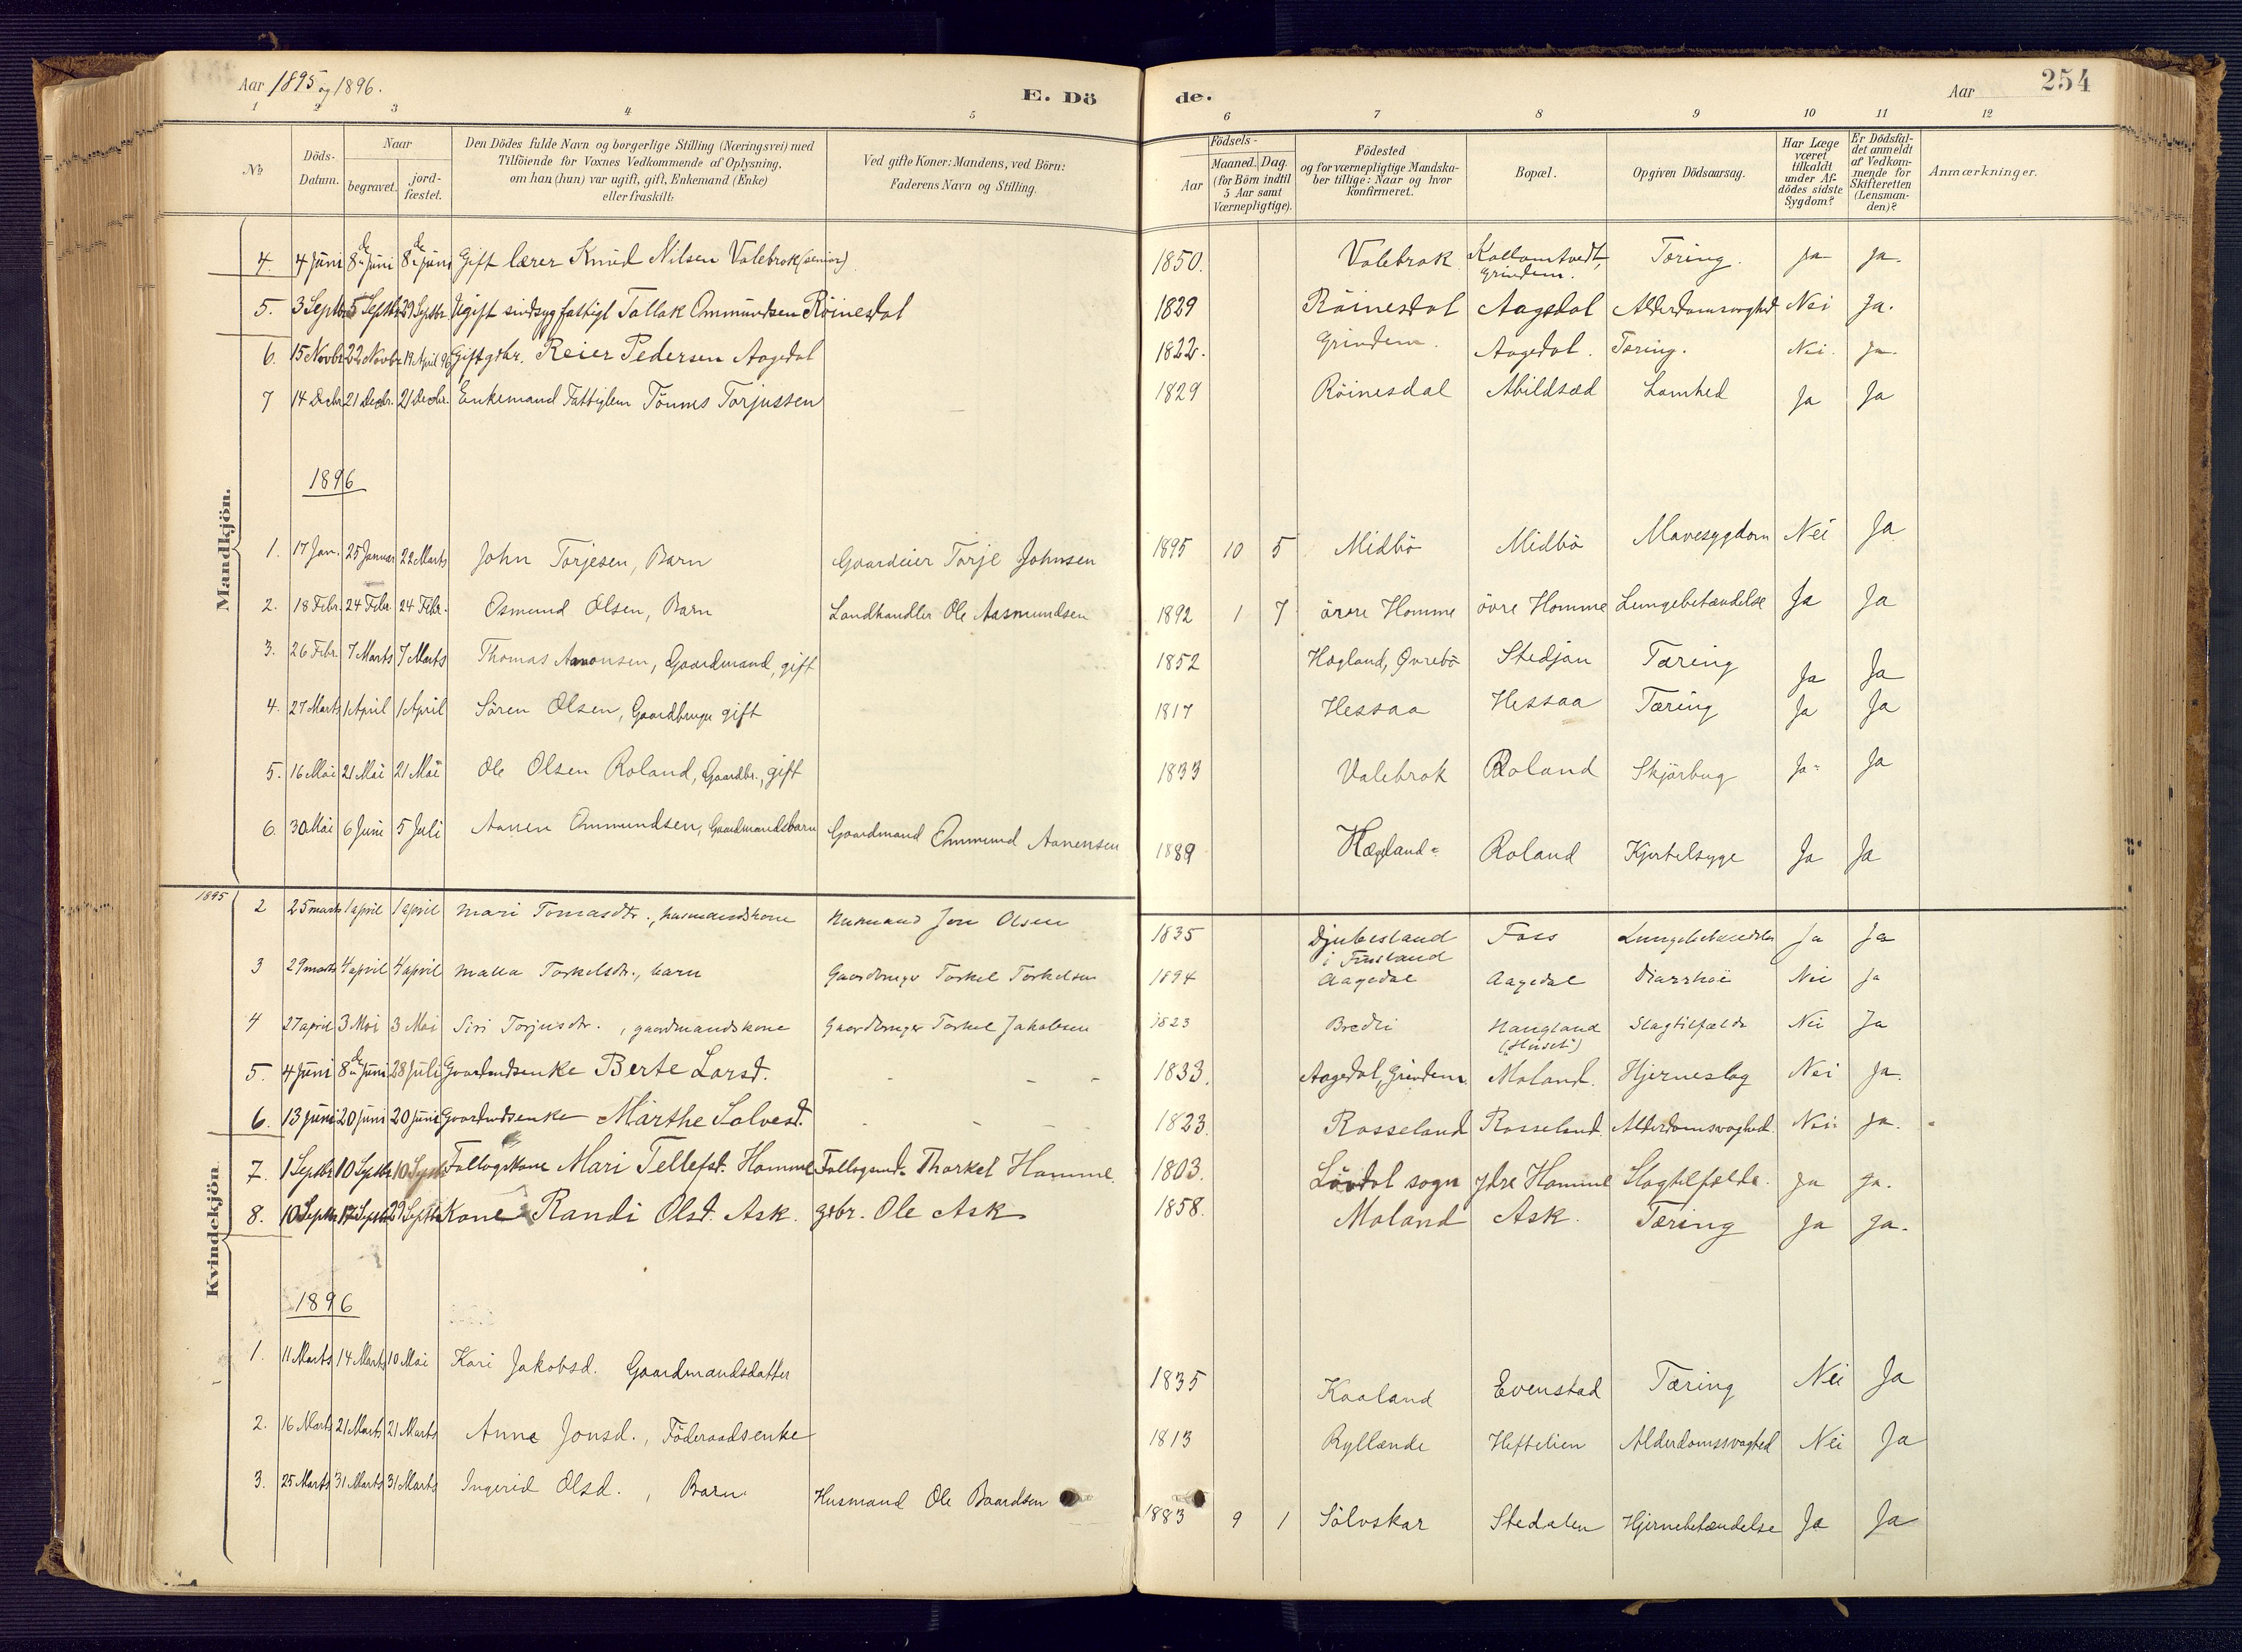 254
Aar 1895 og 1896.
E. Dö de.
Aar
1 2 3 4 5 6 7 8 9 10 11 12
No
Döds-Datum.
Naar
begravet.
jord-fæstet.
Den Dödes fulde Navn og borgerlige Stilling (Næringsvei) med
Tilföiende for Voxnes Vedkommende af Oplysning,
om han (hun) var ugift, gift, Enkemand (Enke)
eller fraskilt:
Ved gifte Koner: Mandens, ved Börn:
Faderens Navn og Stilling.
Födsels-
Aar
Maaned. Dag.
(for Börn indtil
5 Aar samt
Værnepligtige).
Födested
og for værnepligtige Mandska-
ber tillige: Naar og hvor
konfirmeret.
Bopæl.
Opgiven Dödsaarsag.
Har Læge
været
tilkaldt
under Af-
dödes sidste
Sygdom?
Er Dödsfal-
det anmeldt
af Vedkom-
mende for
Skifteretten
(Lensman-
den)?
Anmærkninger.
Mandkjön.
4. 4 Juni 8de Juni 8de Juni Gift lærer Knud Nilsen Valebrok (senior). 1850. Valebrok Grindem. Tæring. Ja Ja.
5. 3 Septbr 5 Septbr 29 Septbr. Ugift sindsyg fattigl Tallak Ommundsen Röinesdal 1829 Röinesdal Aagedal Alderdomssvaghed Nei Ja.
6. 15 Novbr 22 Novbr. 19 April 96 Gift gdbr. Reier Pedersen Aagedal 1822. Grindem. Aagedal. Tæring. Nei. Ja.
7 14 Decbr. 21 Decbr. 21 Decbr. Enkemand Fattiglem Tönnes Torjussen 1829 Röinesdal Abildsæd Lamhed Ja Ja
1896
1. 17 Jan. 25 Januar 22 Marts John Torjesen, Barn Gaardeier Torje Johnsen 1895 10 5 Midbö Midbö Mavesygdom Nei Ja
2. 18 Febr. 24 Febr. 24 Febr. Osmund Olsen, Barn Landhandler Ole Aasmundsen 1892 1 7 övre Homme övre Homme Lungebetændelse Ja Ja
3. 26 Febr. 7 Marts 7 Marts Thomas Aanonsen, Gaardmand, gift 1852 Hægland, Øvrebö Stedjan Tæring Ja Ja
4. 27 Marts 1 April 1 April Sören Olsen, Gaardbruger gift 1817 Hessaa Hessaa Tæring Ja Ja
5. 16 Mai 21 Mai 21 Mai Ole Olsen Roland, Gaardbr., gift 1833 Valebrok Roland Skjörbug Ja Ja
6. 30 Mai 6 Juni 5 Juli Aanen Ommundsen, Gaardmandsbarn Gaardmand Ommund Aanensen 1889 Hægland Roland Kjertelsyge Ja Ja
1895
Kvindekjön.
2 25 marts 1 april 1 april Mari Tomasdtr., husmandskone Husmand Jon Olsen 1835 Djubesland
i Finsland Foss Lungebetændelse Ja Ja
3 29 marts 4 april 4 april Malla Torkelsdtr., barn Gaardbruger Torkel Torkelsen 1894 Aagedal Aagedal Diarrhoë Nei Ja
4 27 april 3 Mai 3 Mai Siri Torjusdtr., gaardmandskone Gaardbruger Torkel Jakobsen 1823 Bredli Haugland
(Huset) Slagtilfælde Nei Ja
5. 4 Juni 8de Juni 28 Juli Gaardmdsenke Berte Larsd. 1833. Aagedal, Grindem. Moland. Hjerneslag Nei Ja.
6. 13 Juni 20 Juni 20 Juni Gaardmdsenke Marthe Salvesd. 1823. Rosseland Rosseland. Alderdomssvaghed. Nei Ja.
7. 1 Septbr 10 Septbr 10 Septbr Follogskone Mari Tellefsd. Homme Follogsmd. Thorkel Homme. 1803. Lövdal sogn ydre Homme Slagtilfælde. Ja Ja.
8. 10 Septbr 17 Septbr 29 Septbr Kone Randi Olsd. Ask. gdbr. Ole Ask 1858. Moland Ask. Tæring Ja Ja.
1896
1. 11 Marts 14 Marts 10 Mai Kari Jakobsd. Gaardmandsdatter 1835 Kaaland Evenstad Tæring Nei Ja
2. 16 Marts 21 Marts 21 Marts Anne Jonsd., Föderaadsenke 1813 Ryllande Heftelien Alderdomssvaghed Nei Ja
3. 25 Marts 31 Marts 31 Marts Ingerid Olsd., Barn Husmand Ole Baardsen 1883 9 1 Sölvskar Stedalen Hjernebetændelse Ja Ja